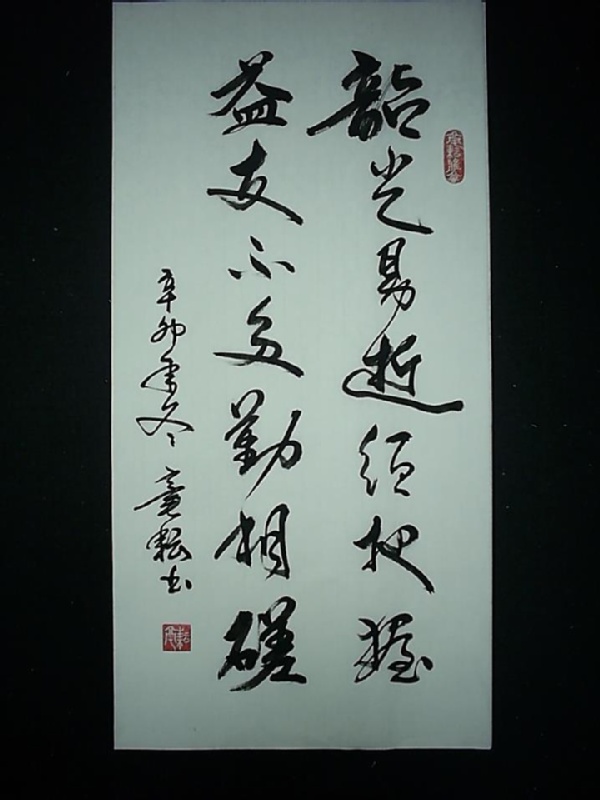 韶光易逝须把握
益友不多勤相磋
辛卯年冬 竟耘书